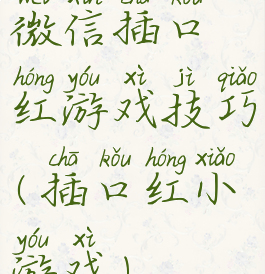 wēi xìn chā kǒu
微信插口
hóng yóu xì jì qiǎo
红游戏技巧
chā kǒu hóng xiǎo
(插口红小
yóu xì
游戏)